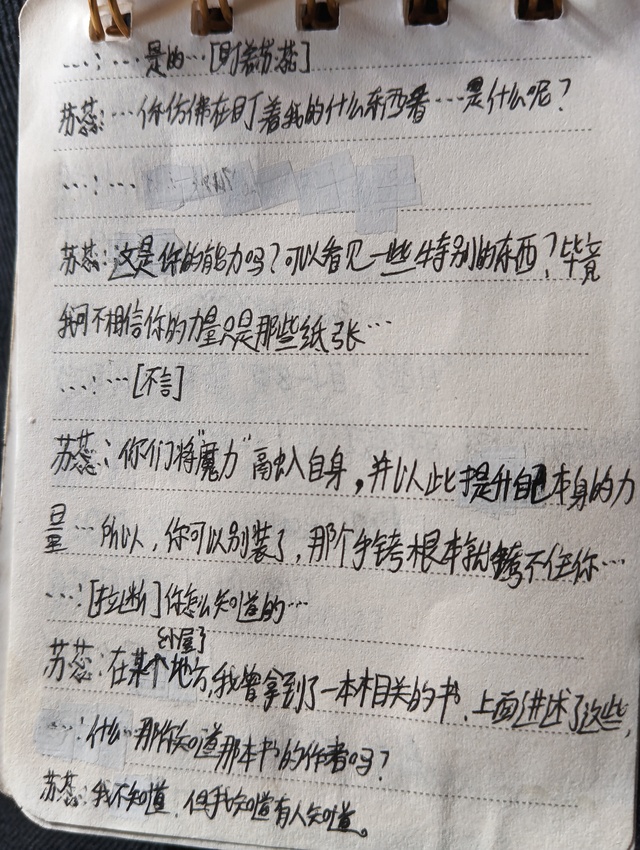 …：…是的…[盯着苏蕊]
苏蕊：…你仿佛在盯着我的什么东西看…是什么呢？
…：…
苏蕊：这是你的能力吗？可以看见一些特别的东西？毕竟
我可不相信你的力量只是那些纸张…
…：…[不言]
苏蕊：你们将“魔力”融入自身，并以此提升自己本身的力
量…所以，你可以别装了，那个手铐根本就铐不住你…
…：[拉断]你怎么知道的…
小屋子
苏蕊：在某个地方，我曾拿到了一本相关的书，上面讲述了这些，
…：什么…那你知道那本书的作者吗？
苏蕊：我不知道，但我知道有人知道。